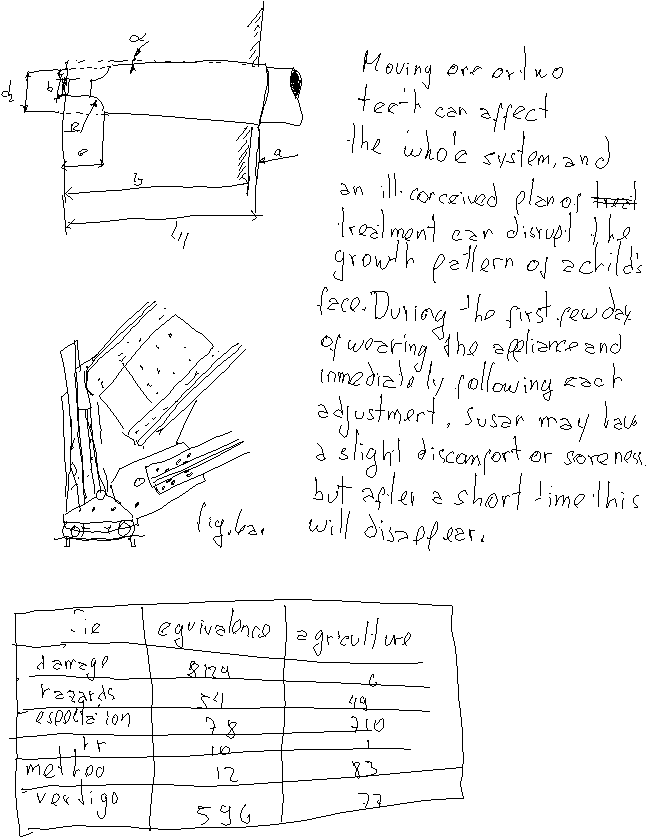 α
d₂
b
R
e
a
l3
l11
Moving one or two
teeth can affect
the whole system, and
an ill-conceived plan of
treatment can disrupt the
growth pattern of a child's
face. During the first few day
of wearing the appliance and
immediately following each
adjustment, Susan may have
a slight discomfort or soreness
but after a short time this
will disappear.
Fig. 6a.
.ie equivalence agriculture
damage 6
hazards 54 49
78 710
hr 10 1
method 12 83
vertigo 596 77